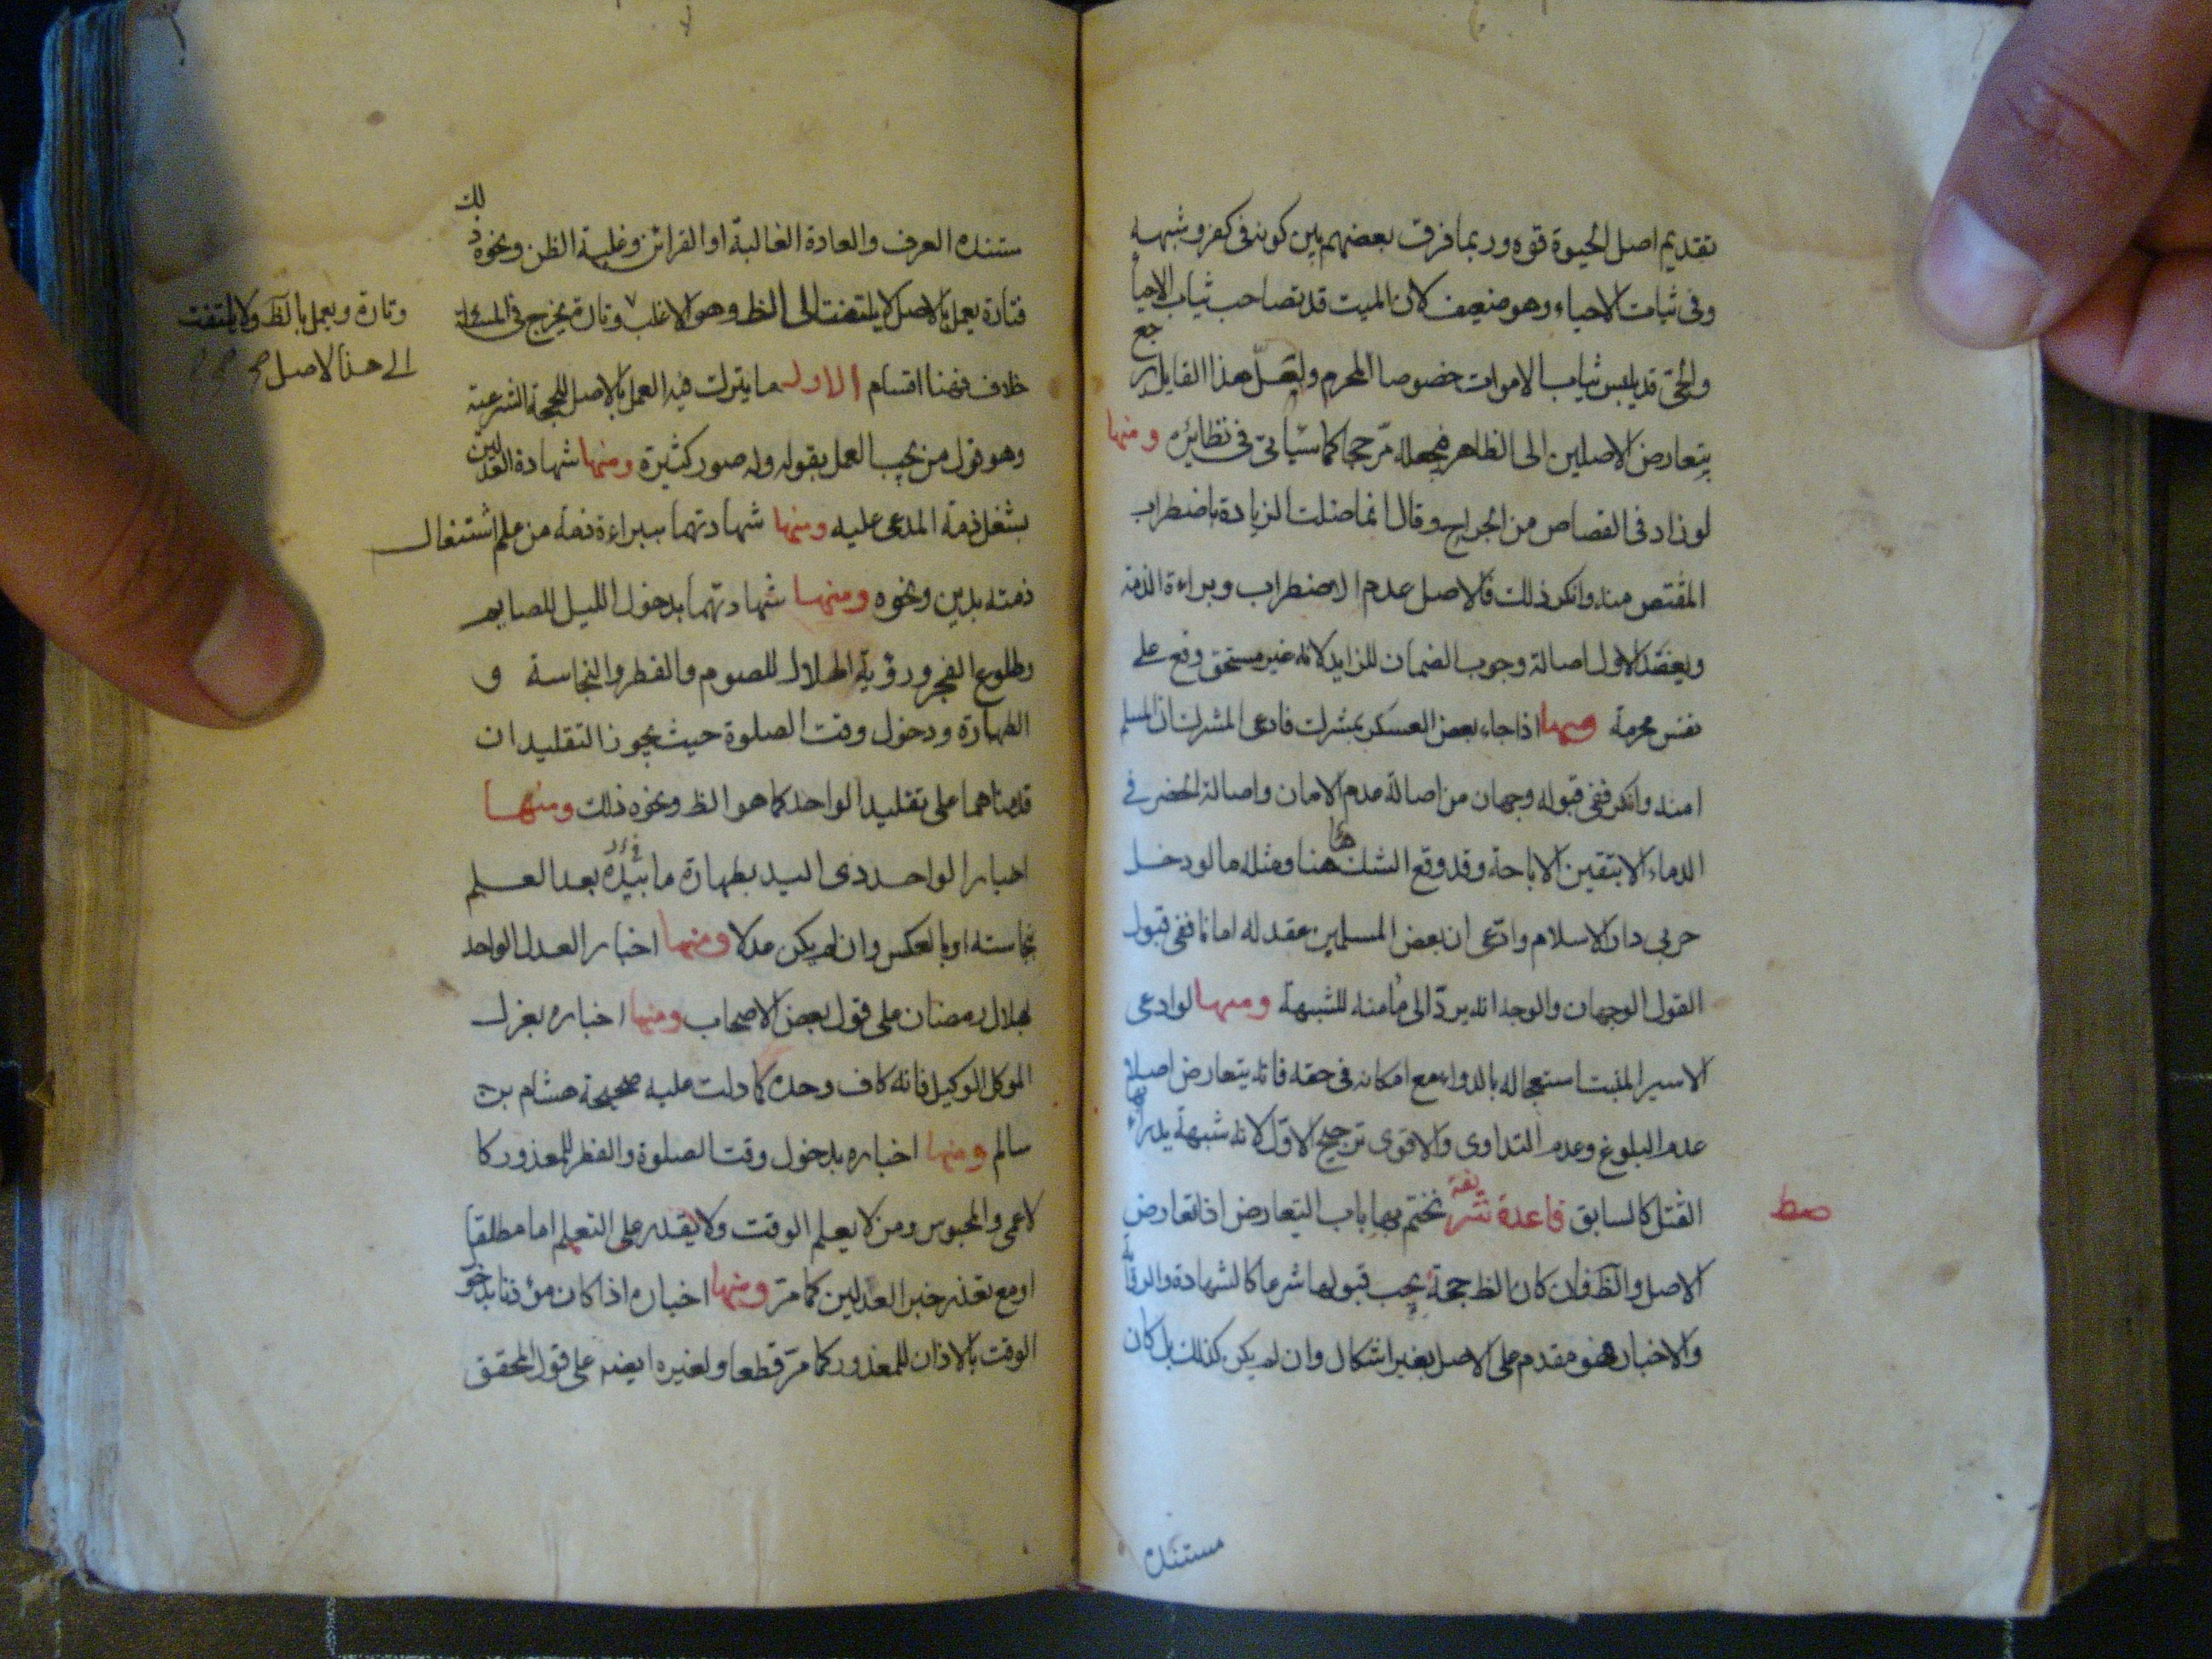 تقديم اصل الحيوة قوة وربما فرق بعضهم بين كونه في كفن وشبهه
وفي ثياب الاحياء وهو ضعيف لان الميت قد تصاحب ثياب الاحيا
والحي قد يلبس ثياب الاموات خصوصا المحرم ولعل هذا القايل رجع
بتعارض الاصلين الى الظاهر فجعله مرجحا كما سيأتي في نظايره ومنها
لو زاد في القصاص من الجراح وقال انما حصلت الزيادة باضطراب
المقتص منه وانكر ذلك فالاصل عدم الاضطراب وبراءة الذمة
ويعضد الاول اصالة وجوب الضمان للزايد لانه غير مستحق وقع على
نفس محرمة ومنها اذا جاء بعض العسكر بمشرك فادعى المشرك ان المسلم
امنه وانكر ففي قبوله وجهان من اصالة عدم الامان واصالة الحضر في
الدماء الا بتيقن الاباحة وقد وقع الشك هنا ومثله ما لو دخل
حربي دار الاسلام وادعى ان بعض المسلمين عقد له امانا ففي قبول
القول الوجهان والوجه انه يرد الى مأمنه للشبهة ومنها لو ادعى
الاسير المنبت استعجاله بالدواء مع امكانه في حقه فانه يتعارض اصلا
عدم البلوغ وعدم التداوي والاقوى ترجيح الاول لانه شبهة يدرأ بها
القتل كالسابق قاعدة شريفة نختم بها باب التعارض اذا تعارض
الاصل والظ فان كان الظ حجة يجب قبولها شرعا كالشهادة والرواية
والاخبار فهو مقدم على الاصل بغير اشكال وان لم يكن كذلك بل كان
مستنده
ستنده العرف والعادة الغالبة او القرائن وغلبة الظن ونحو ذلك
فتارة يعمل بالاصل لا يلتفت الى الظ وهو الاغلب وتارة يخرج في المسئلة
وتارة ويعمل بالظ ولا يلتفت
الى هذا الاصل صح
خلاف فهنا اقسام الاول ما يترك فيه العمل بالاصل للحجة الشرعية
وهو قول من يجب العمل بقوله وله صور كثيرة ومنها شهادة العدلين
بشغل ذمة المدعى عليه ومنها شهادتهما ببراءة ذمة من علم اشتغال
ذمته بدين ونحوه ومنها شهادتهما بدخول الليل للصايم
وطلوع الفجر ورؤية الهلال للصوم والفطر والنجاسة و
الطهارة ودخول وقت الصلوة حيث يجوز التقليد ان
قدمناهما على تقليد الواحد كما هو الظ ونحوه ذلك ومنها
اخبار الواحد ذى اليد بطهارة ما بيده بعد العلم
بنجاسته او بالعكس وان لم يكن عدلا ومنها اخبار العدل الواحد
بهلال رمضان على قول بعض الاصحاب ومنها اخباره بعزل
الموكل الوكيل فانه كاف وحده كما دلت عليه صحيحة هشام بن
سالم ومنها اخباره بدخول وقت الصلوة والفطر للمعذور كا
لاعمى والمحبوس ومن لا يعلم الوقت ولا يقدر على التعلم اما مطلقا
او مع تعذر خبر العدلين كما مر ومنها اخباره اذا كان مؤذنا بدخو
الوقت بالاذان للمعذور كما مر قطعا ولغيره ايضه على قول المحقق